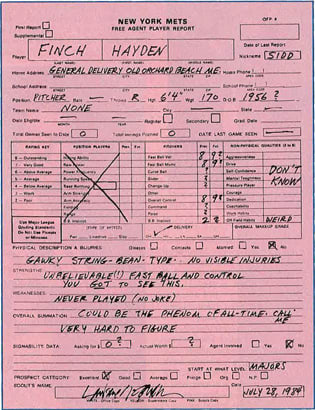 OFP #
NEW YORK METS
FREE AGENT PLAYER REPORT
First Report
Supplemental
FINCH HAYDEN
Player
Date of Last Report
Nickname SIDD
Home Address GENERAL DELIVERY OLD ORCHARD BEACH ME. House Phone
School Address School Phone
Position PITCHER Bats Throws R Hgt 6'4" Wgt 170 D.O.B 1956 ?
Team Name NONE City State
Date Eligible Regular Secondary Grad Date
Total Games Seen to Date 0 Total Innings Pitched 0 DATE LAST GAME SEEN
RATING KEY POSITION PLAYERS Pres. Fut. PITCHERS Pres. Fut. NON-PHYSICAL QUALITIES
8 – Outstanding Hitting Ability Fast Ball Vel 8 9? Aggressiveness
7 – Very Good Raw Power Fast Ball Mvmt 8 9? Drive
6 – Above Average Power Frequency Curve Ball Self-Confidence DON'T
5 – Average Running Speed Slider Mental Toughness KNOW
4 – Below Average Base Running Change Up Pressure Player
3 – Weak Arm Strength Other Courage
2 – Poor Arm Accuracy Overall Control 8 9? Dedication
Fielding Command Coachability
Range Poise Work Habits
B.B. Instinct B.B. Instinct 2 2 Off Field Habits WEIRD
Use Major League
Grading Standards
Do Not Use Pluses
or Minuses
DELIVERY OVERALL MAKEUP GRADE
PHYSICAL DESCRIPTION & INJURIES: Glasses Contacts Married Yes No
GAWKY STRING-BEAN-TYPE-- NO VISIBLE INJURIES
STRENGTHS
UNBELIEVABLE(!!) FAST BALL AND CONTROL
YOU GOT TO SEE THIS.
WEAKNESSES
NEVER PLAYED (NO JOKE)
OVERALL SUMMATION COULD BE THE PHENOM OF ALL-TIME. CALL ME
VERY HARD TO FIGURE
SIGNABILITY DATA: Asking for $ 0? Actual Worth $ ? Agent Involved Yes No
START AT WHAT LEVEL MAJORS
PROSPECT CATEGORY Excellent Good Average Fringe Org N.P.
SCOUT'S NAME Date JULY 28, 1984